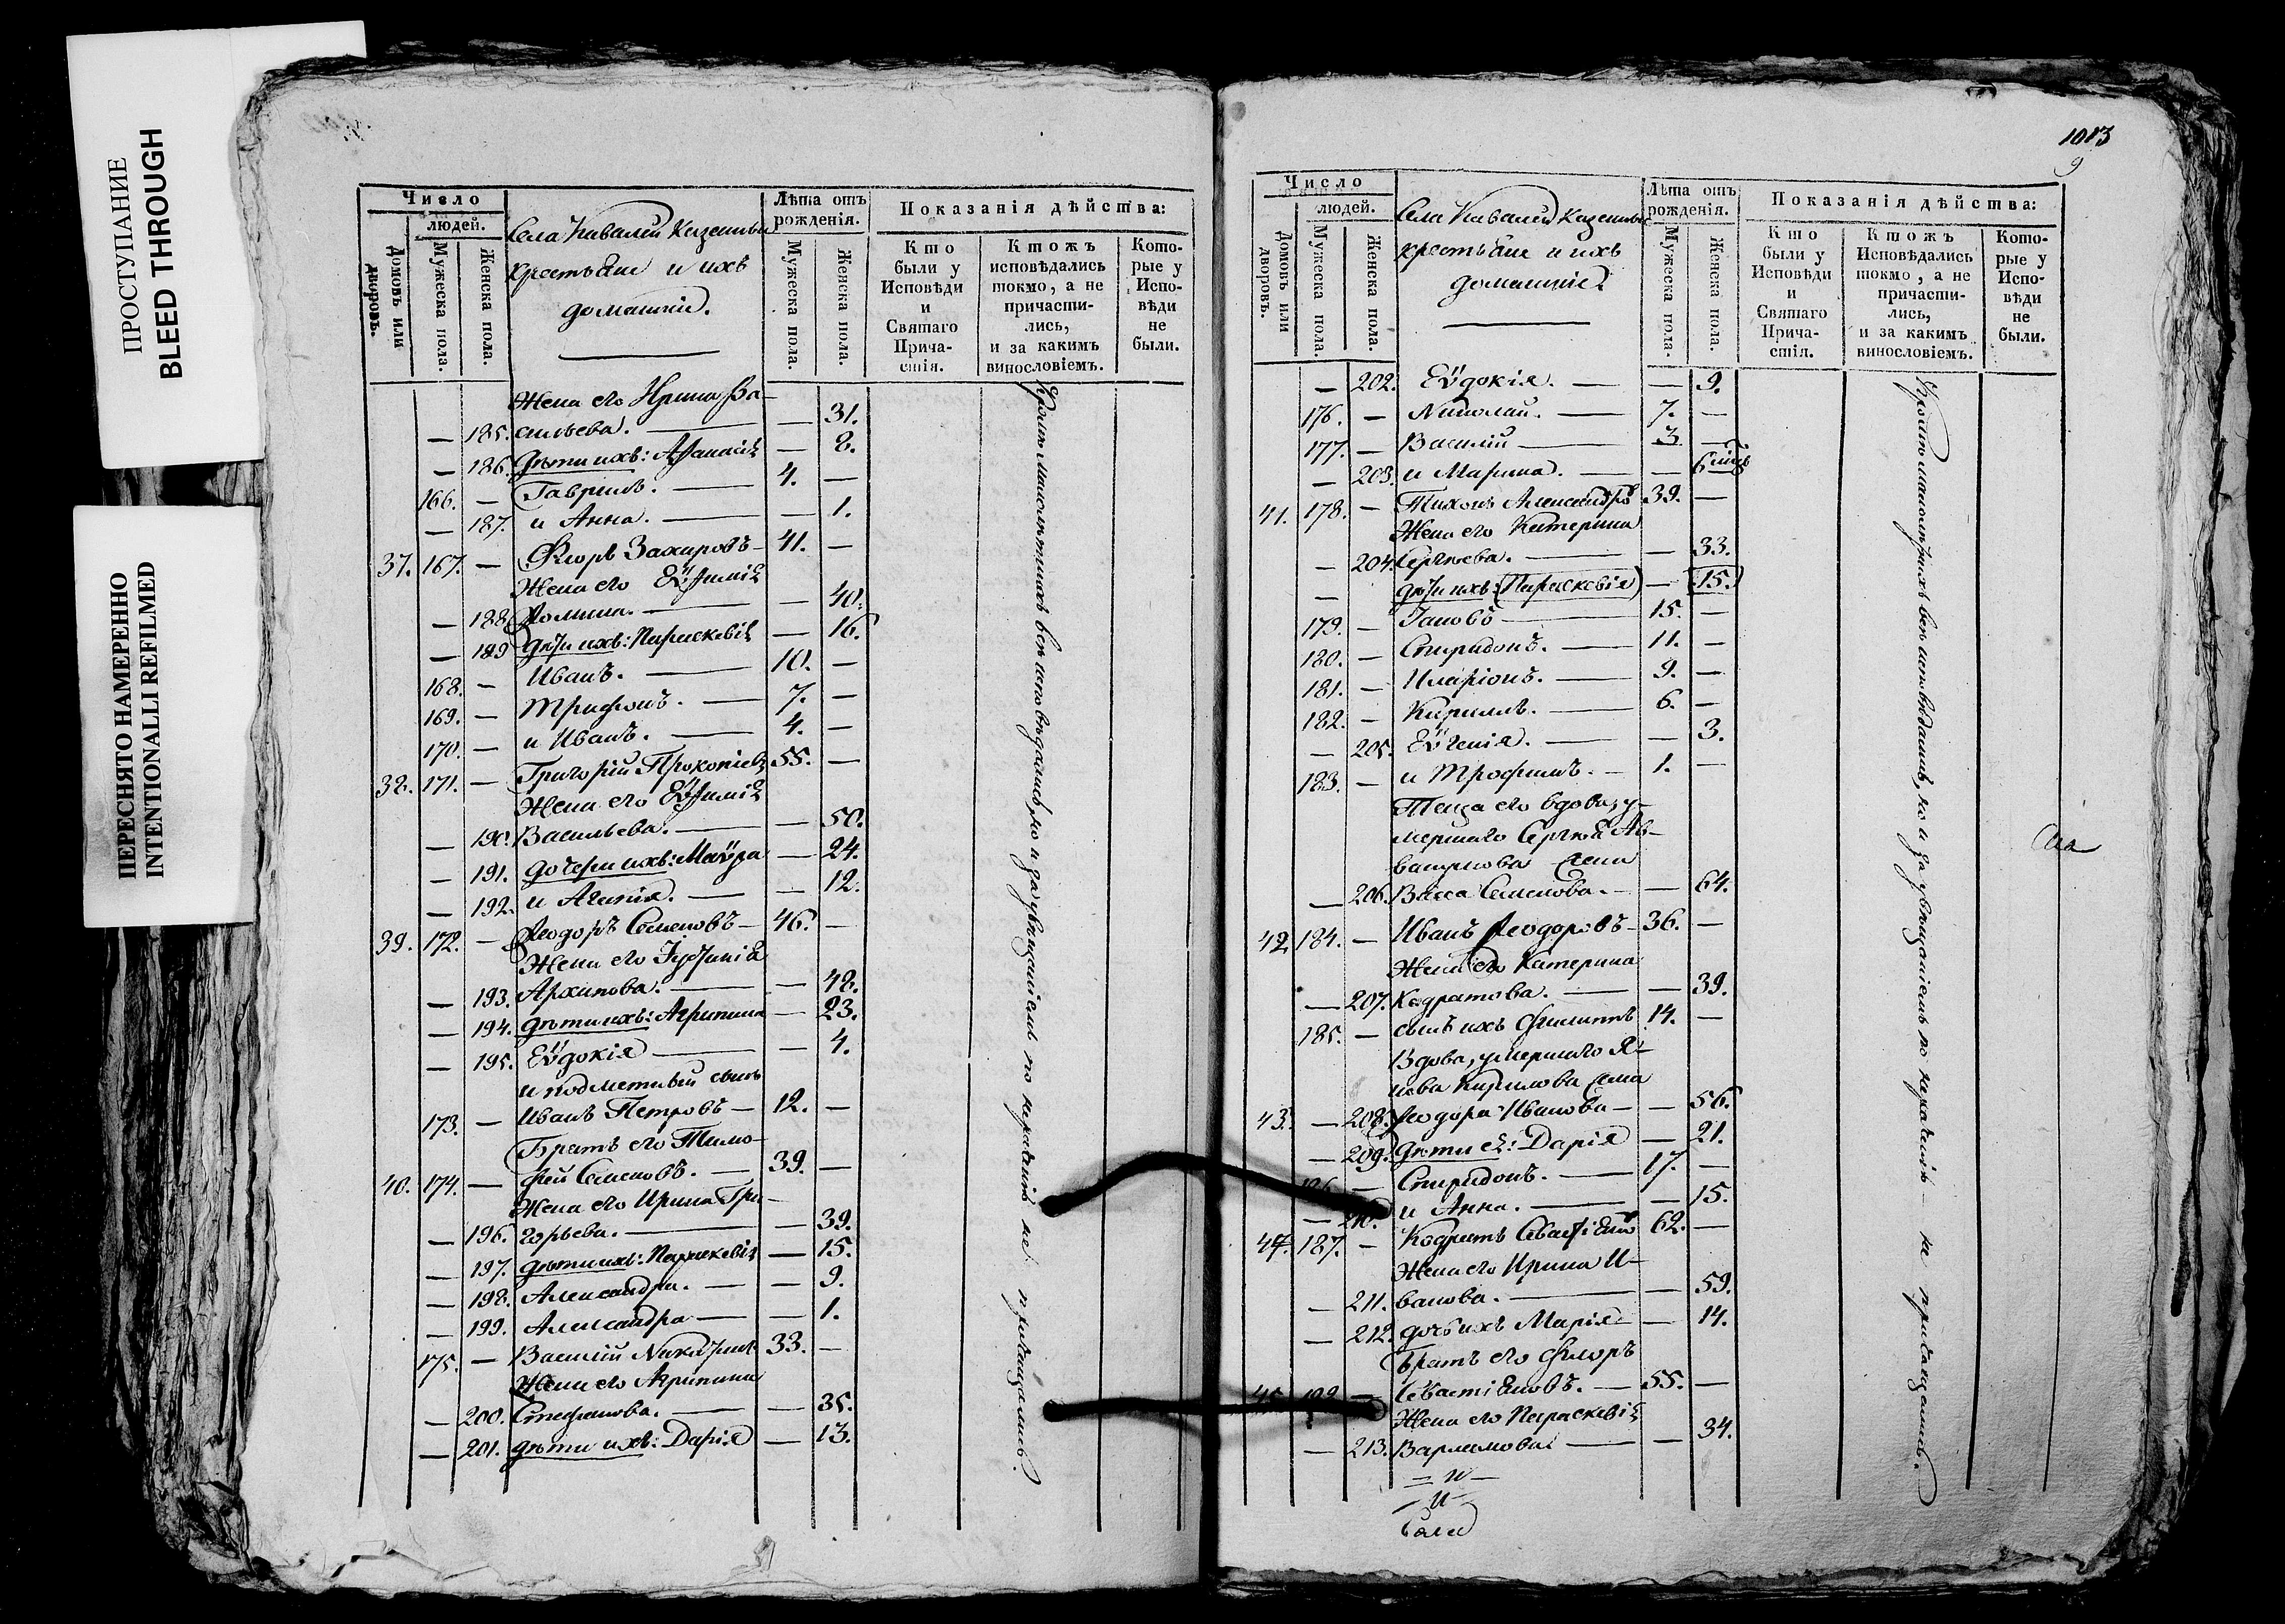 ПРОСТУПАНИЕ
BLEED THROUGH
ПЕРЕСНЯТО НАМЕРЕННО
INTENTIONALLI REFILMED
Число
людей.
Домовъ или дворовъ.
Мужеска пола.
Женска пола.
Села
крестьяне и ихъ
домашніе.
Лѣта отъ рожденія.
Мужеска пола.
Женска пола.
Показанія дѣйства:
Кто были у Исповѣди и Святаго Прича-стія.
Ктожъ исповѣдались токмо, а не причасти-лись, и за какимъ винословіемъ.
Кото-рые у Испо-вѣди не были.
Жена его Ирина Ва-
— 185. сильева. — — 31.
— 186. дѣти ихъ: — 8.
166. — Гавріилъ. — 4. —
— 187. и Анна. — — 1.
37. 167. — Флоръ Захаровъ — 41. —
Жена его
— 188. Фомина. — — 40.
— 189. дѣти ихъ: Параскевія — 16.
168. — Иванъ. — 10. —
169. — Трифонъ. — 7. —
170. — и Иванъ. — 4. —
38. 171. — Григорій Прокопіевъ 55. —
Жена его
— 190. Васильева. — — 50.
— 191. дочери ихъ: Маѵра — 24.
— 192. и Агапія. — — 12.
39. 172. — Ѳеодоръ Семеновъ — 46. —
Жена его
— 193. Архипова. — — 48.
— 194. дѣти ихъ: Агрипина — 23.
— 195. Еѵдокія — — 4.
и сынъ
173. — Иванъ Петровъ — 12. —
Братъ его Тимо-
40. 174. — фей Семеновъ. — 39. —
Жена его Ирина Гри-
— 196. горьева. — — 39.
— 197. дѣти ихъ: Параскевія — 15.
— 198. Александра. — — 9.
— 199. Александра — — 1.
175. — Василій 33. —
Жена его Агрипина
— 200. Стефанова. — — 35.
— 201. дѣти ихъ: Дарія — 13.
1013
9
Число
людей.
Домовъ или дворовъ.
Мужеска пола.
Женска пола.
Села
крестьяне и ихъ
домашніе.
Лѣта отъ рожденія.
Мужеска пола.
Женска пола.
Показанія дѣйства:
Кто были у Исповѣди и Святаго Прича-стія.
Ктожъ Исповѣдались токмо, а не причасти-лись, и за какимъ винословіемъ.
Кото-рые у Испо-вѣди не были.
— 202. Еѵдокія. — — 9.
176. — Николай. — 7. —
177. — Василій — 3. —
— 203. и Марина. — — 6
41. 178. — Тихонъ 39. —
Жена его Катерина
— 204. Сергѣева. — — 33.
— дѣти ихъ: Параскевія — 15.
179. — Іаковъ — 15. —
180. — Спиридонъ. — 11. —
181. — Иларіонъ. — 9. —
182. — Кириллъ. — 6. —
— 205. Еѵгенія. — — 3.
183. — и Трофимъ. — 1. —
Теща его вдова, у-
мершаго Сергѣя Ав-
жена
— 206. Васса Семенова. — — 64.
42. 184. — Иванъ Ѳеодоровъ — 36. —
Жена его Катерина
— 207. Кодратова. — — 39.
185. — сынъ ихъ Филиппъ 14. —
Вдова, умершаго Я-
кова Кирилова жена
43. — 208. Ѳеодора Иванова — — 56.
— 209. дѣти ея: Дарія — 21.
186. — Спиридонъ. — 17. —
— 210. и Анна. — — 15.
44. 187. — Кодратъ 62. —
Жена его Ирина И-
— 211. ванова. — — 59.
— 212. дочь ихъ Марія — 14.
Братъ его Флоръ
45. 188. — Севастіановъ. — 55. —
Жена его Параскевія
— 213. — — 34.